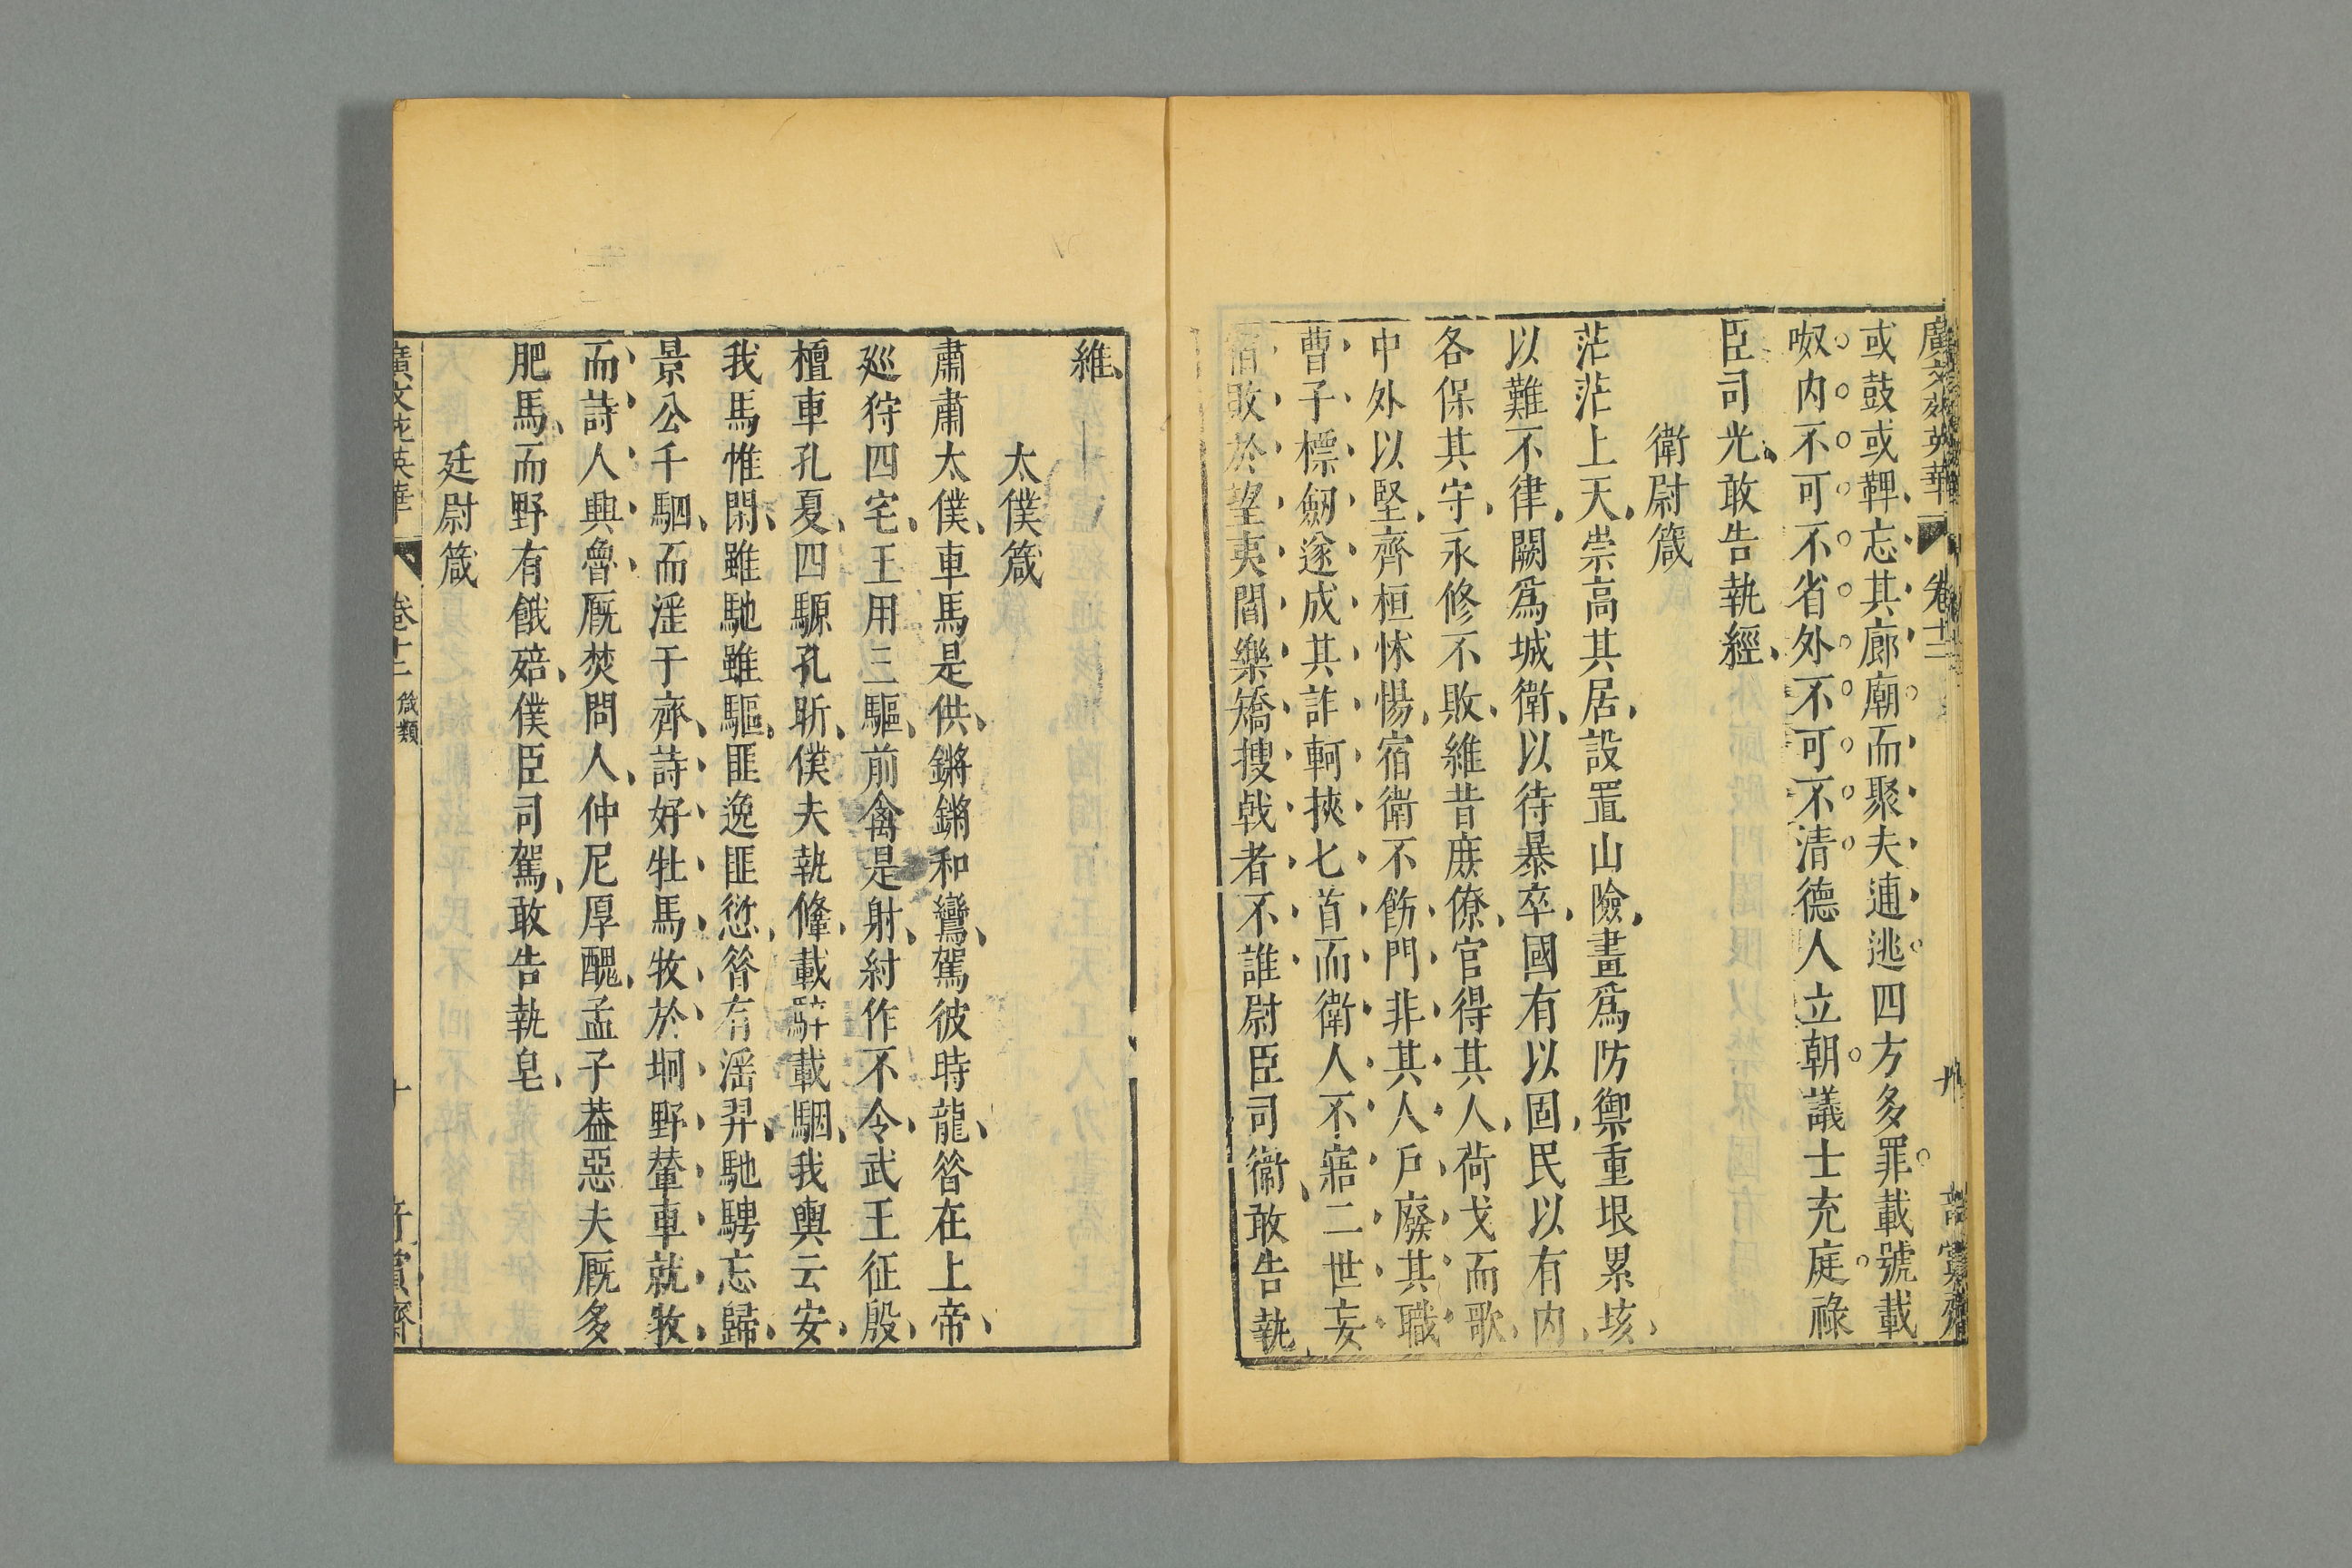 廣文苑英華
卷十二
或鼓或鞞忘其廊廟而聚夫逋逃四方多罪載號載
呶内不可不省外不可不清德人立朝議士充庭祿
臣司光敢告執經
衛尉箴
茫茫上天崇高其居設置山險畫爲防禦重垠累垓
以難不律闕爲城衛以待暴卒國有以固民以有内
各保其守永修不敗維昔庶僚官得其人荷戈而歌
中外以堅齊桓怵惕宿衛不飭門非其人戶廢其職
曹子摽劒遂成其詐軻挾匕首而衛人不寤二世妄
宿敗於望夷閻樂矯搜戟者不誰尉臣司衞敢告執
維
太僕箴
肅肅太僕車馬是供鏘鏘和鸞駕彼時龍昝在上帝
廵狩四宅王用三驅前禽是射紂作不令武王征殷
檀車孔夏四騵孔昕僕夫執鞗載騂載駰我輿云安
我馬惟閑雖馳雖驅匪逸匪愆昝有淫羿馳騁忘歸
景公千駟而淫于齊詩好牡馬牧於坰野輦車就牧
而詩人興魯厩焚問人仲尼厚醜孟子葢惡夫厩多
肥馬而野有餓殍僕臣司駕敢告執皂
廷尉箴
廣文苑英華
卷十二
箴類
十